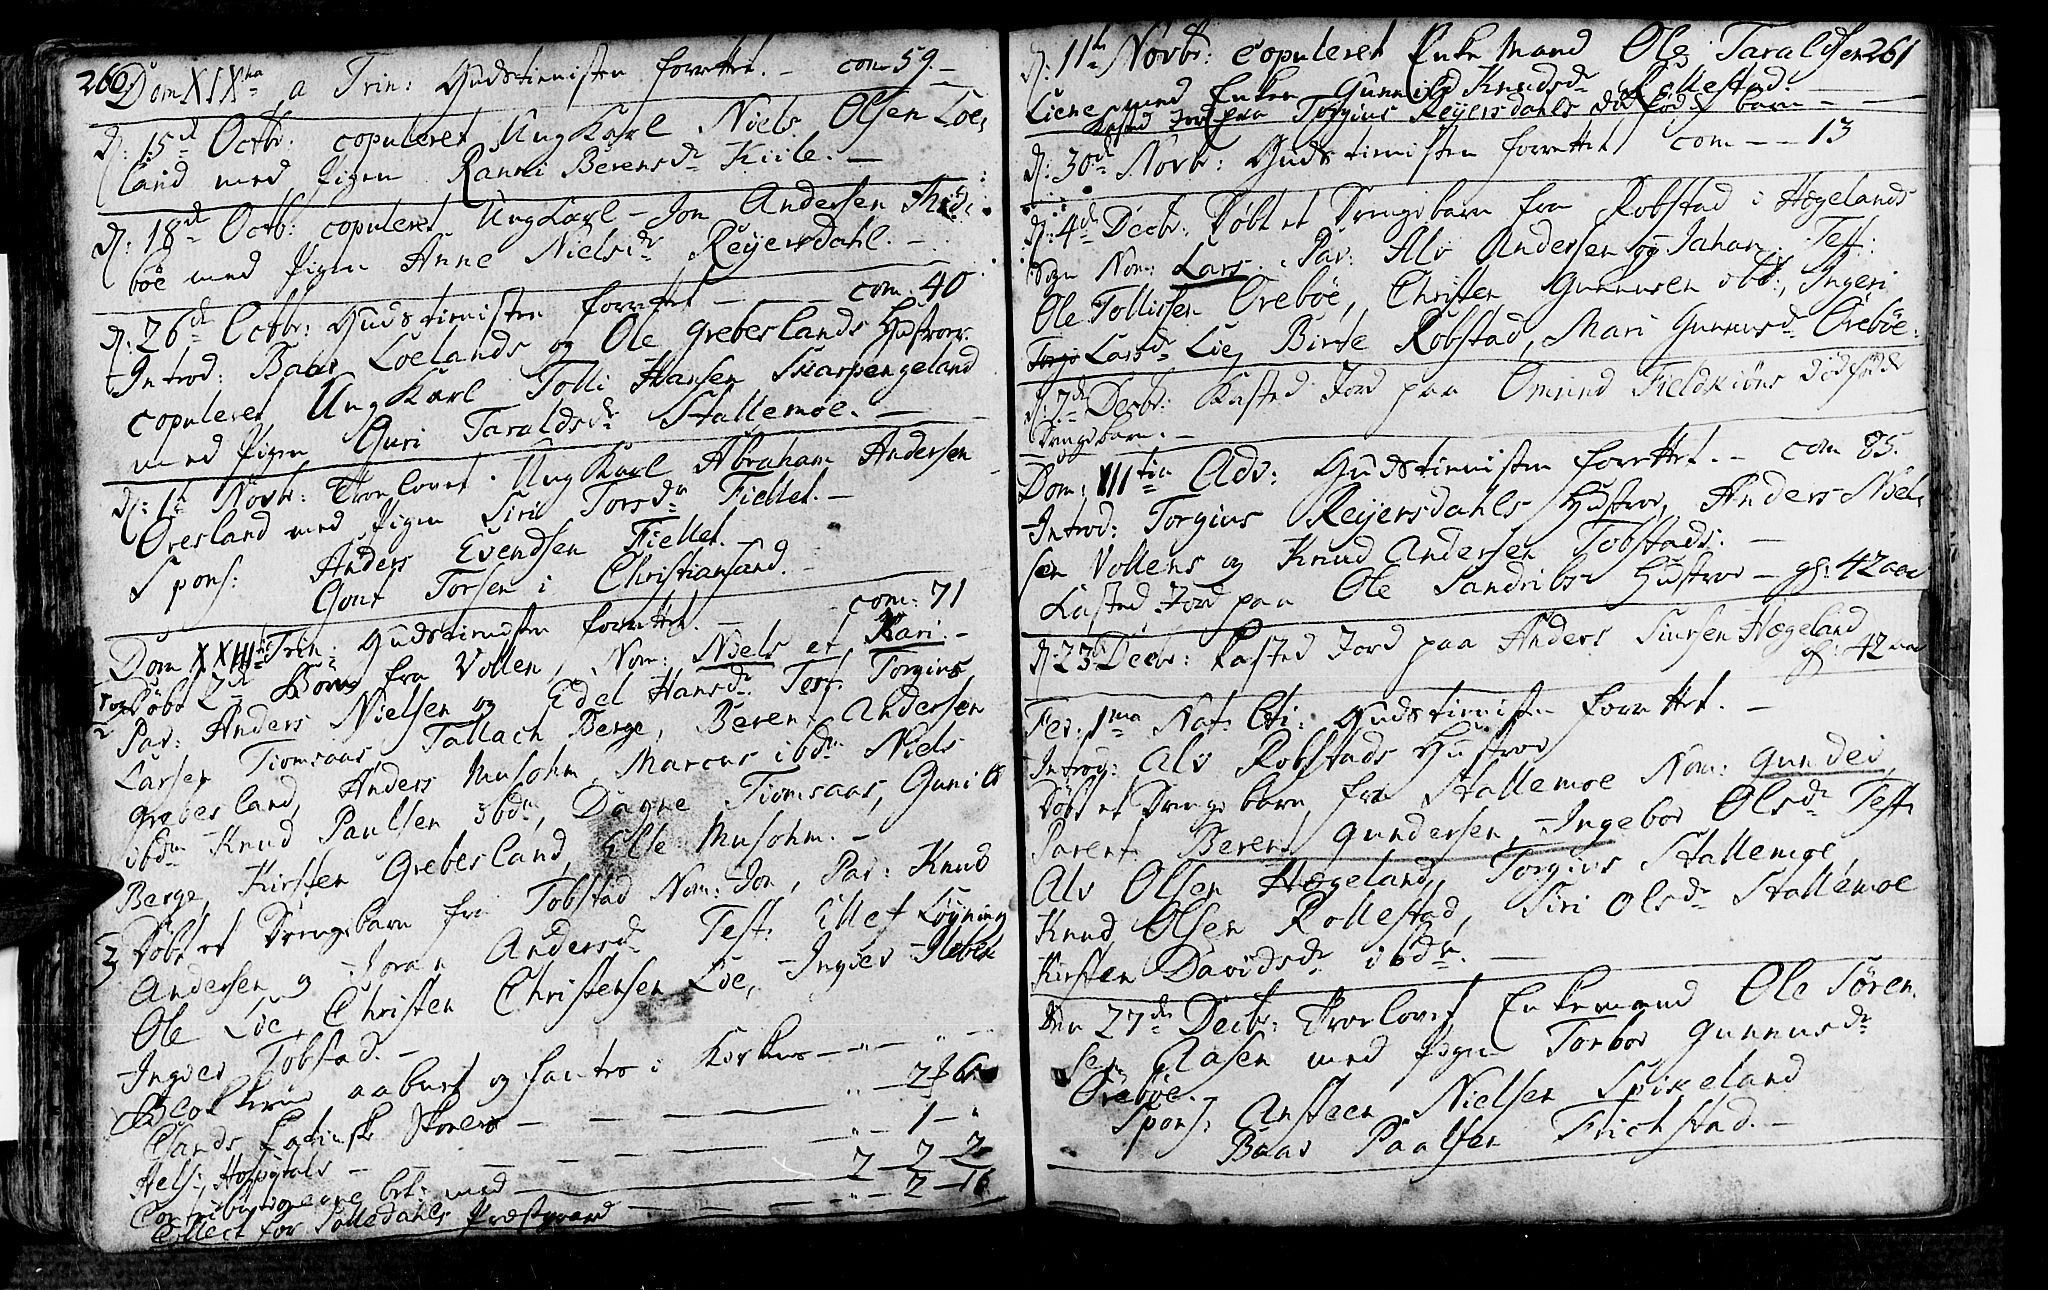 260.
Dom XIX ta a Trin: Gudstienisten forrettet. — com 59.—
d: 15 d Octbr: copuleret UngKarl Niels Olsen Loe,
land med Pigen Ranni Berensdr Kiile. —
d: 18 d Octb: copuleret UngKarl — Jon Andersen
böe med Pigen Anne Nielsdr Reijersdahl. —
d: 26 d Octbr: Gudstienisten forrettet — com: 40
Introd: Baar Loelands og Ole Grebeslands Hustroer.
copuleret UngKarl Tolli Hansen Skarpengeland
med Pigen Guri Taraldsdr Stallemoe. —
d: 1 t Novbr: Trolovet UngKarl Abraham Andersen
Öresland med Pigen Siri Torsdr Fiellet. —
Spons: Anders Evendsen Fiellet. —
Gont Torsen i Christiansand. —
Dom XXIII Trin: Gudstienisten forrettet. — com: 71
1 og 2 Döbt 2de Börn fra Vollen, Nom: Niels et Kari. —
Par: Anders Nielsen og Edel Hansdr. Test. Torgius
Larsen Tiomsaas Tallach Berge, Berent Andersen
Grebesland, Anders Musohm, Marcus ibdm Niels
ibdm Knud Paulsen ibdm, Dagne Tiomsaas, Gunild
Berge, Kirsten Grebesland, Else Musohm. —
3 Döbt et Drengebarn fra Tobstad Nom: Jon, Par: Knud
Andersen og Joran Andersdr Test: Ellef Löyning
Ole Löe, Christen Christensen Löe, Inger Ilebek
Inger Tobstad. —
Blokkerne aabnet og fantes i Kirken — " — " —
2 — 6
Sands Latinske Skoele — — — " — 1 — "
Hels: Hospytals — — — 2 — 2 — 2
Contributionerne bet: med — — 2 — 16
Collect for Tolledahls Præstgaard
261
d: 11 te Novbr: copuleret Enke Mand Ole Taraldsen
Liene med Enken Gunnild Knudsdr Rollestad.
Kasted Jord paa Torgius Reijersdahls dödfödde barn —
d: 30 d Novbr: Gudstienisten forrettet com — 13
d: 4 d Decbr: Döbt et Drengebarn fra Robstad i Högelands
Sogn Nom: Lars. Par: Alv Andersen og Johan. Test:
Ole Tollissen Öreböe, Christen Gunnusen ibd:, Ingeri
Larsdr Lie, Birte Robstad, Mari Gunnusdr Öreböe.
d: 7 d Decbr: Kasted Jord paa Omund Fieldkiöns dödfödde
Drengebarn. —
Dom: III tia Adv: Gudstienisten forrettet. — com 85.
Introd: Torgius Reijersdahls Hustroe, Anders Niel,
sen Vollens og Knud Andersen Tobstads. —
Kasted Jord paa Ole Sandribs Hustroe — gl: 42 aar
d: 23 d Decbr: Kasted Jord paa Anders Siursen Hægeland
gl: 42 aar
Fer: 1 ma Nat: Cti: Gudstienisten forrettet. —
Introd: Alv Robstads Hustroe
Döbt et Drengebarn fra Stallemoe Nom: Gundei,
Parent. Berent Gundersen, Ingebor Olsdr Test:
Alv Olsen Hægeland, Torgius Stallemoe,
Knud Olsen Rollestad, Siri Olsdr Stallemoe
Kirsten Davidsdr ibdm. —
Den 27 de Decbr: Trolovet Enkemand Ole Sören,
sen Aasen med Pigen Torbor Gunnusdr
Öreböe.
Spons: Ansteen Nielsen Spikeland
Baar Paalsen Frichstad. —